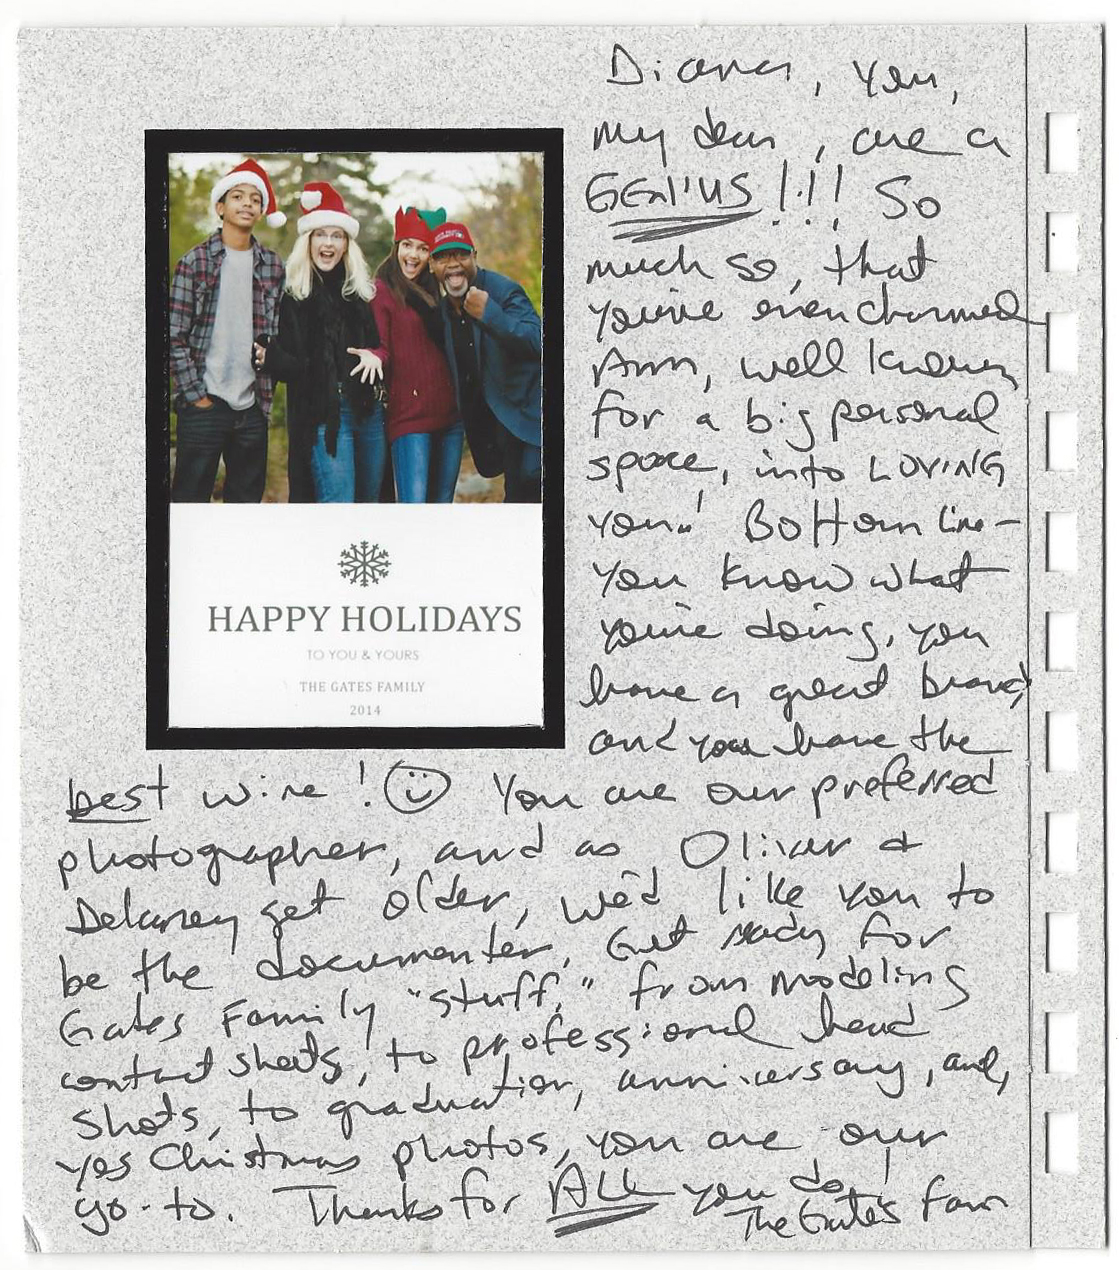 Diana, you,
my dear, are a
GENIUS!!! So
much so, that
you've even charmed
Ann, well known
for a big personal
space, into LOVING
you! Bottom line -
you know what
you're doing, you
have a great brand,
and you have the
best wine! ☺ You are our preferred
photographer, and as Oliver &
Delaney get older, we'd like you to
be the documenter. Get ready for
Gates Family "stuff," from modeling
contact sheets, to professional head
shots, to graduation, anniversary, and,
yes Christmas photos, you are our
go-to. Thanks for ALL you do!
The Gates Fam
HAPPY HOLIDAYS
TO YOU & YOURS
THE GATES FAMILY
2014